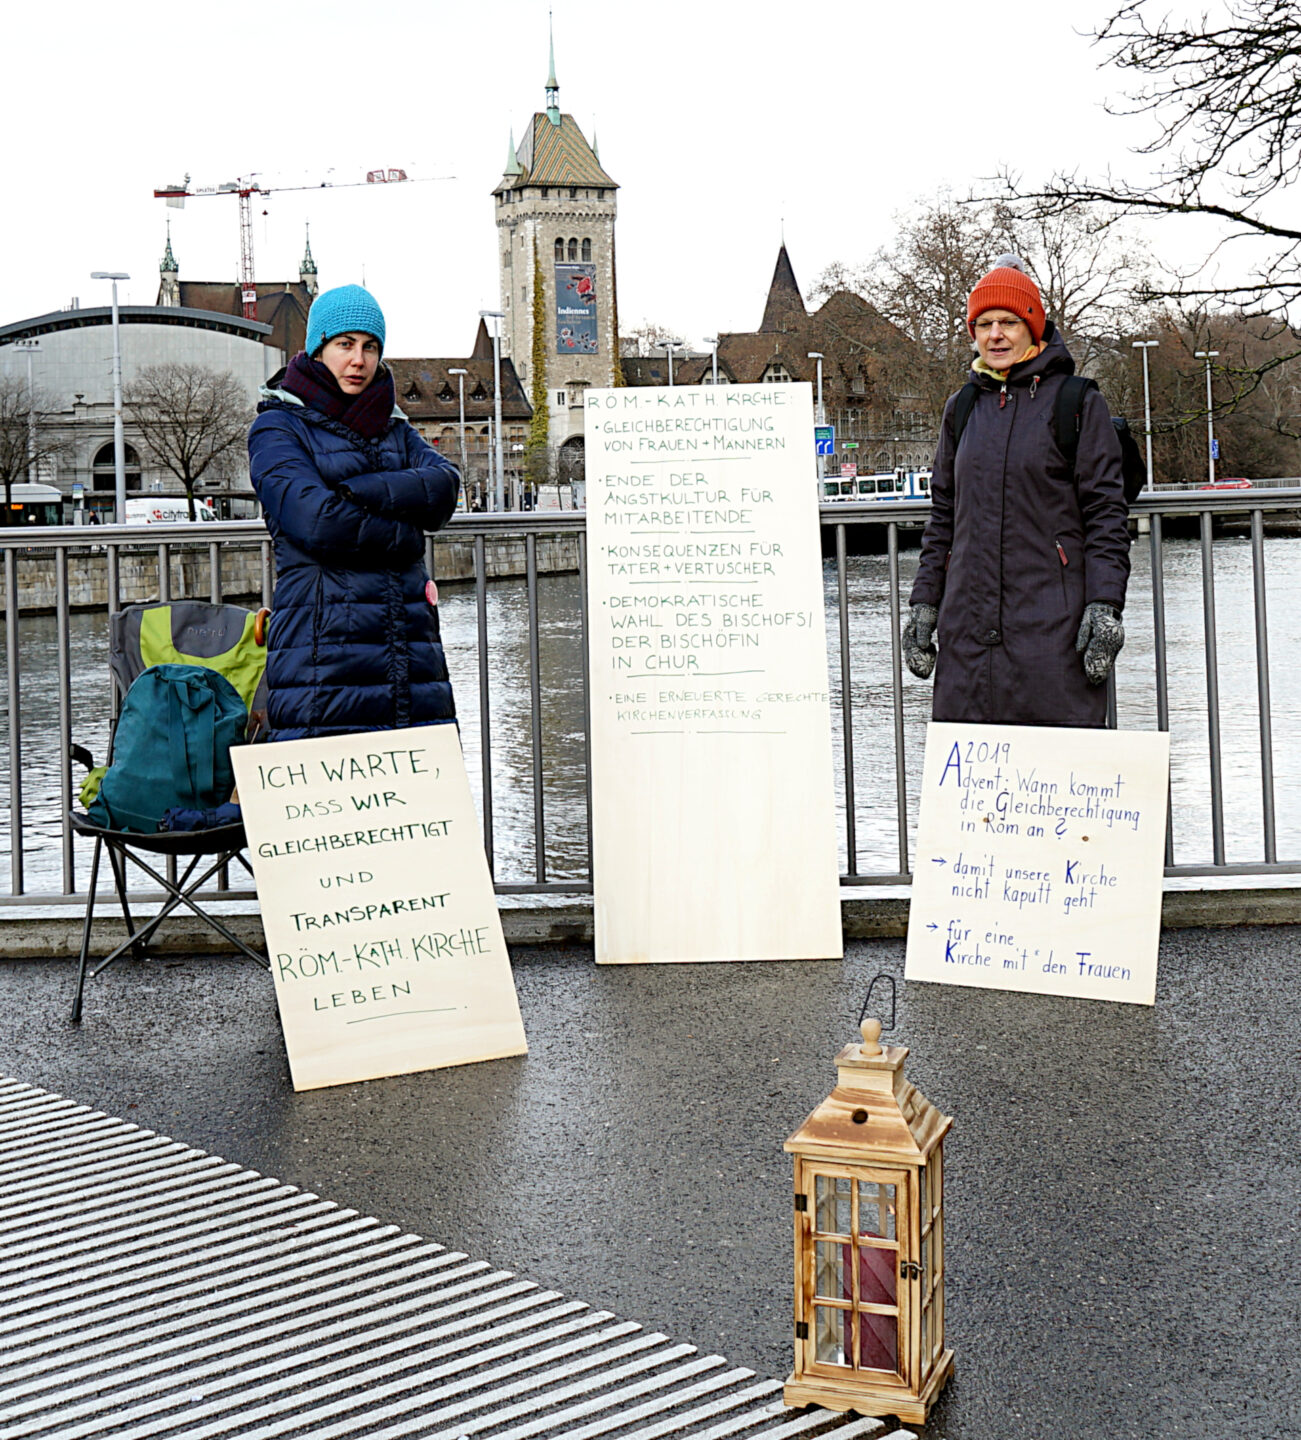 Indiennes
citytrans
RÖM.-KATH. KIRCHE:
• GLEICHBERECHTIGUNG
VON FRAUEN + MÄNNERN
• ENDE DER
ANGSTKULTUR FÜR
MITARBEITENDE
• KONSEQUENZEN FÜR
TÄTER + VERTUSCHER
• DEMOKRATISCHE
WAHL DES BISCHOFS/
DER BISCHÖFIN
IN CHUR
• EINE ERNEUERTE GERECHTE
KIRCHENVERFASSUNG
ICH WARTE,
DASS WIR
GLEICHBERECHTIGT
UND
TRANSPARENT
RÖM.-KATH. KIRCHE
LEBEN
2019
Advent: Wann kommt
die Gleichberechtigung
in Rom an?
→ damit unsere Kirche
nicht kaputt geht
→ für eine
Kirche mit* den Frauen